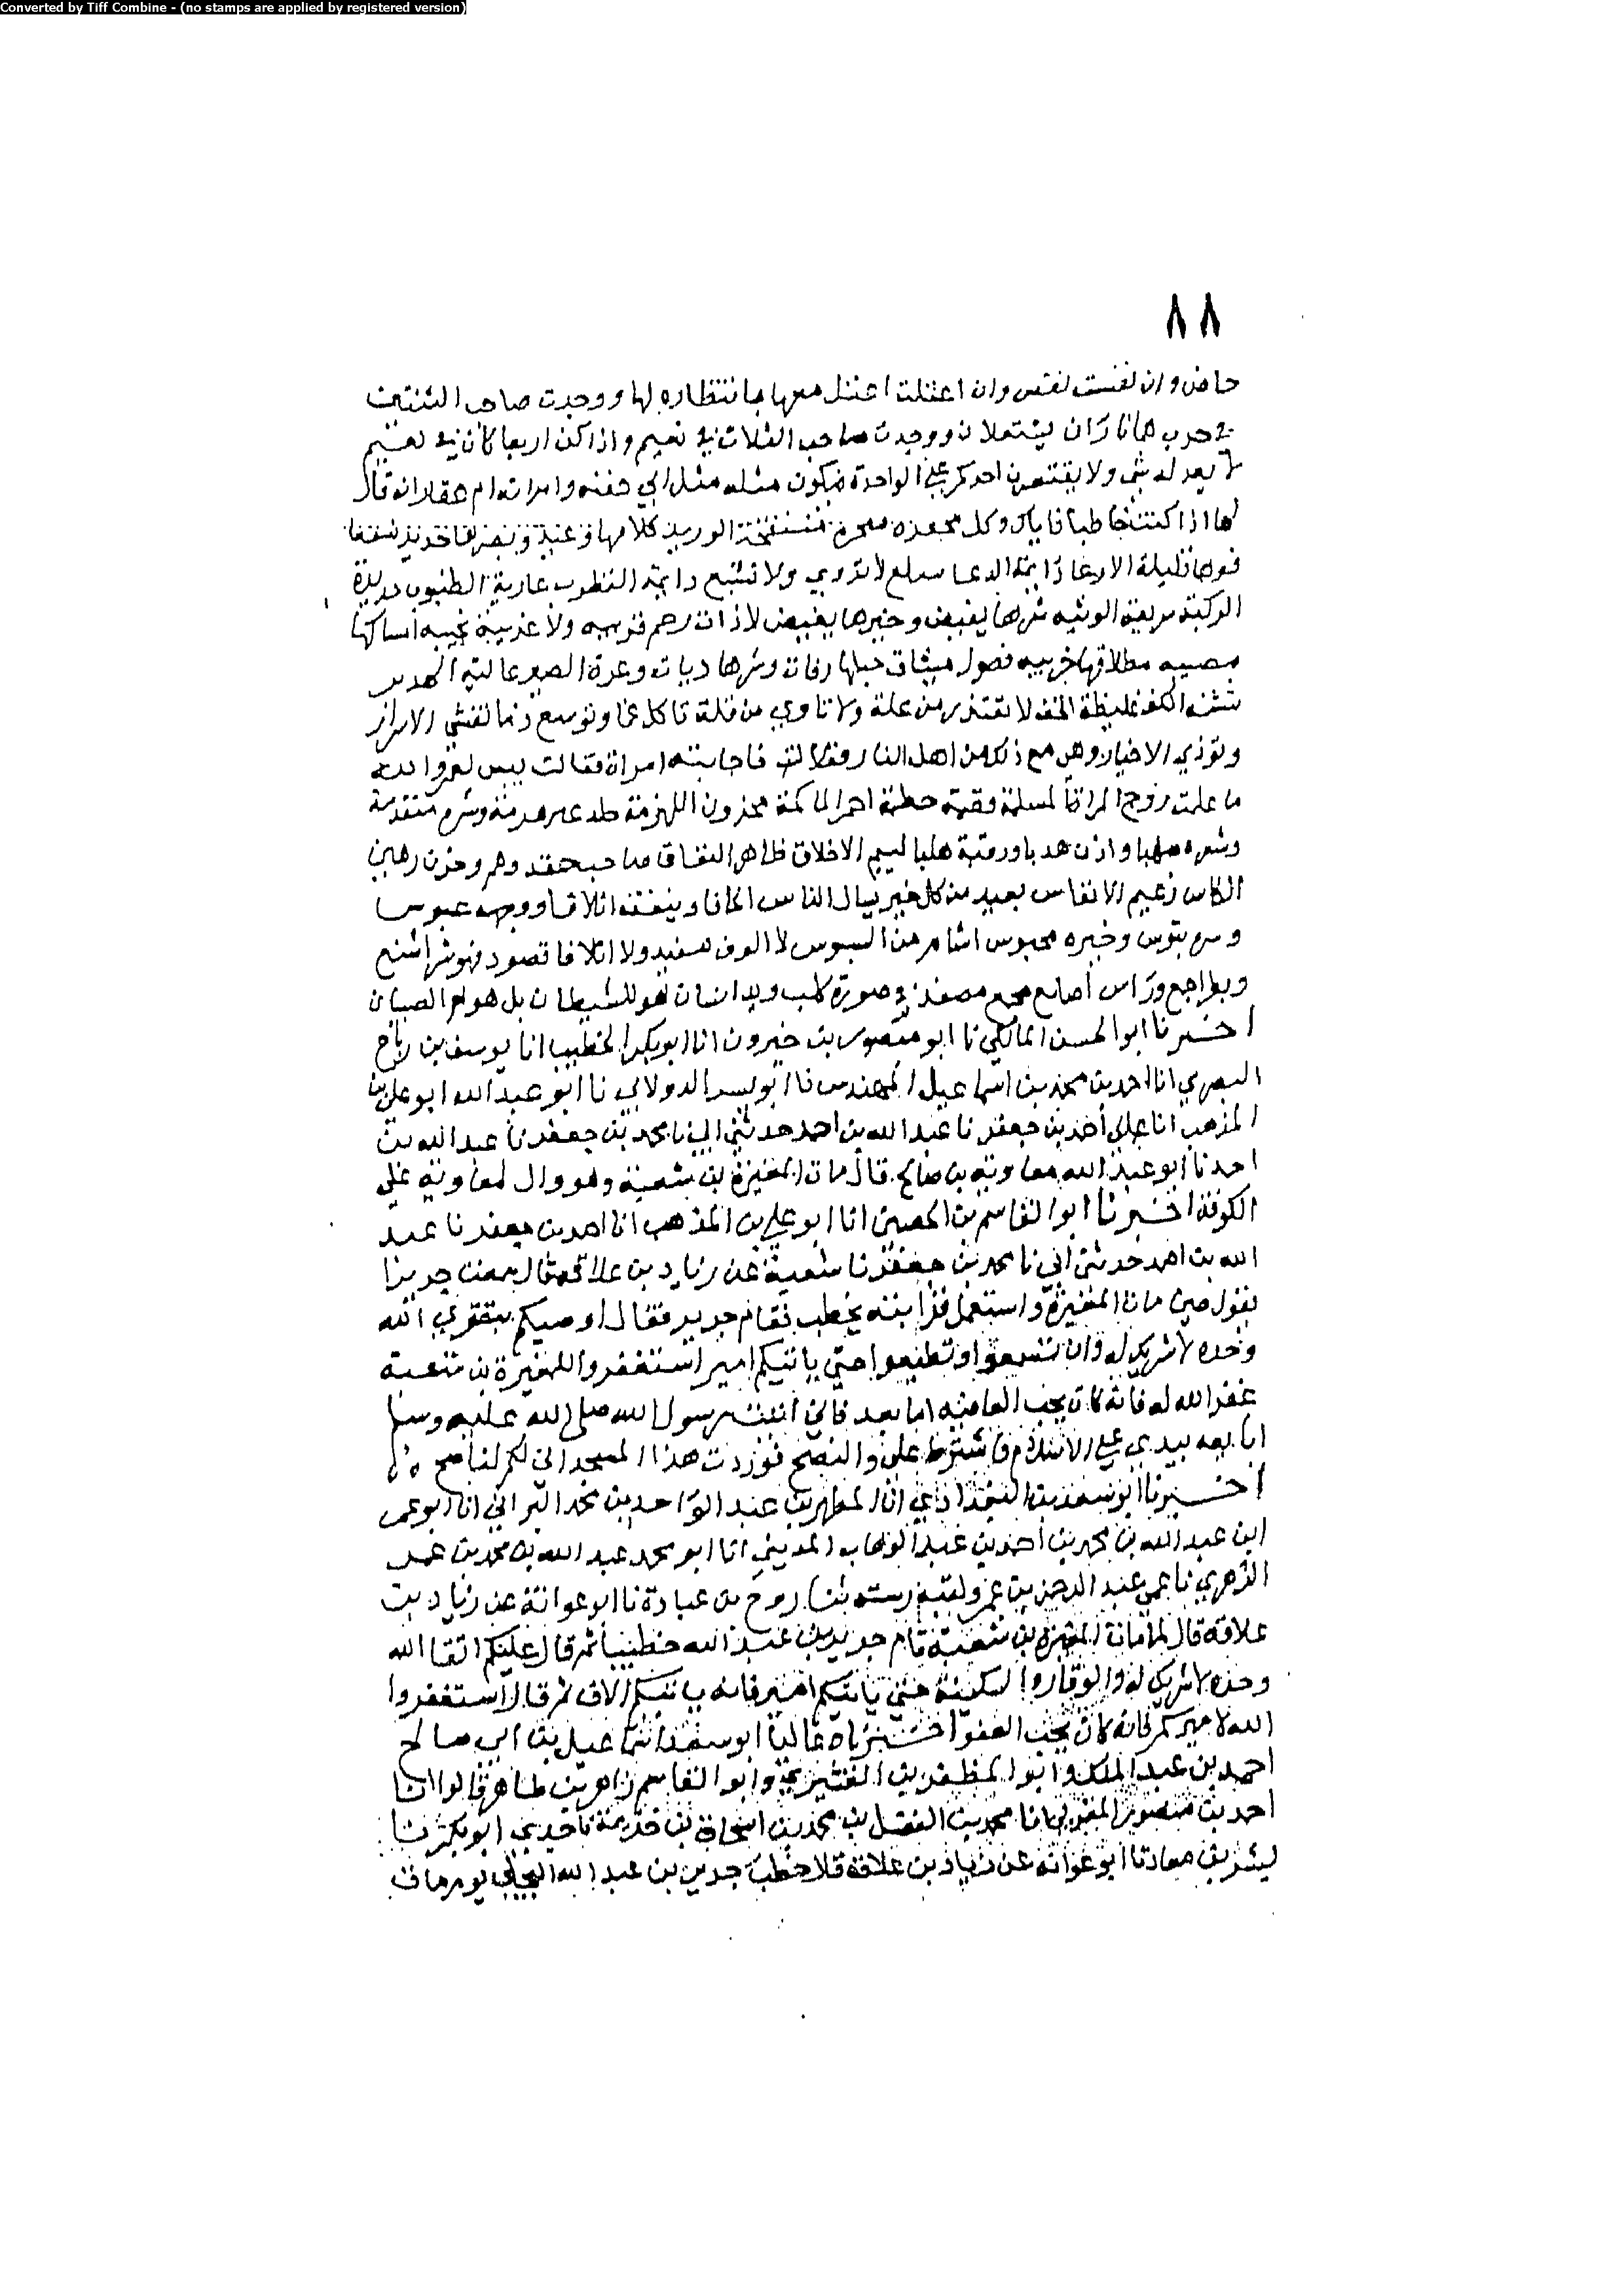 Converted by Tiff Combine - (no stamps are applied by registered version)
٨٨
حاض وان نفست نفس وان اعتلت اعتل معها بانتظاره لها ووجدت صاحب الثنتين
في حرب هما ناران يشتعلان ووجدت صاحب الثلاث في نعيم واذا كن اربعا كان في نعيم
لا يعدله شي ولا يقتصرن احدكم على الواحدة فيكون مثله مثل ابي جفنه وامراته ام عقار انه قال
لها اذا كنت خاطبا فاياك وكل منتفخة الوريد كلامها وعيد
فوها قليلة الارعا دايمة الدعا سلفع لا تروي ولا تشبع دايمة القطوب عارية الظنبوب حديدة
الركبة سريعة الوثبه شرها يفيض وخيرها يغيض لا ذات رحم قريبه ولا غريبة نجيبه امساكها
مصيبه طلاقها حريبه فضول ميناث حبلها رفات وشرها ديات وعرة الصير عالية الهدير
شثنه الكف غليظة الخف لا تعتذر من علة ولا تاوي من قلة تاكل لما وتوسع ذما تفشي الاسرار
وتوذي الاخيار وهي مع ذلك من اهل النار فاجابته امراة فقالت بيس لعمرو الله
ما علمت زوج المراة المسلمة حطمة احمر الماكمة محزون اللهزمة جلد وسرة متقدمة
وشعره صهبا واذن هدبا ورقبة هلبا لييم الاخلاق ظاهر النفاق صاحب حقد وهم وحزن رهين
الكاس زعيم الانفاس بعيد من كل خير يسال الناس الحافا وينفقه اتلافا ووجهه عبوس
وخيره محبوس اشام من البسوس
وراس اصلع في صورة كلب ويد انسان هو الشيطان بل هو ام الصبيان
اخبرنا ابو الحسن المالكي نا ابو منصور بن خيرون انا ابو بكر الخطيب انا يوسف بن رباح
البصري انا احمد بن محمد بن اسماعيل المهندس نا ابو بسر الدولابي نا ابو عبد الله ابو علي بن
المذهب انا علي احمد بن جعفر نا عبد الله بن احمد حدثني ابي نا محمد بن جعفر نا عبد الله بن
احمد نا ابو عبد الله معاوية بن صالح قال مات المغيرة بن شعبة وهو وال لمعاوية علي
الكوفة اخبرنا ابو القاسم بن الحصين انا ابو علي بن المذهب انا احمد بن جعفر نا عبد
الله بن احمد حدثني ابي نا محمد بن جعفر نا شعبة عن زياد بن علاقة قال سمعت جريرا
يقول حين مات المغيرة واستعمل قرابته يخطب فقام جرير فقال اوصيكم بتقوي الله
وحده لا شريك له وان تسمعوا وتطيعوا حتي ياتيكم امير استغفروا للمغيرة بن شعبة
غفر الله له فانه كان يحب العافيه اما بعد فاني اتيت رسول الله صلى الله عليه وسلم
ابايعه بيدي علي الاسلام فاشترط علي والنصح فورب هذا المسجد اني لكم لناصح
اخبرنا ابو سعد بن البغدادي انا المطهر بن عبد الواحد بن محمد البراني انا ابو عمر
ابن عبد الله بن محمد بن احمد بن عبد الوهاب المديني انا ابو محمد عبد الله بن محمد بن عمر
الزهري نا عمي عبد الرحمن بن عمر ولقبه رسته نا روح بن عبادة نا ابو عوانة عن زياد بن
علاقة قال لما مات المغيرة بن شعبة قام جرير بن عبد الله خطيبا ثم قال عليكم اتقا الله
وحده لا شريك له والوقار والسكينة حتي ياتيكم امير فانه ياتيكم الان ثم قال استغفروا
الله لاميركم فانه كان يحب العفو اخبرناه عاليا ابو سعد اسماعيل بن ابي صالح
احمد بن عبد الملك وابو المظفر بن القشيري وابو القاسم زاهر بن طاهر قالوا انا
احمد بن منصور المغربي انا محمد بن الفضل بن محمد بن اسحاق بن خزيمة نا جدي ابو بكر نا
بشر بن معاذ نا ابو عوانه عن زياد بن علاقة قال خطب جرير بن عبد الله البجلي يوم مات